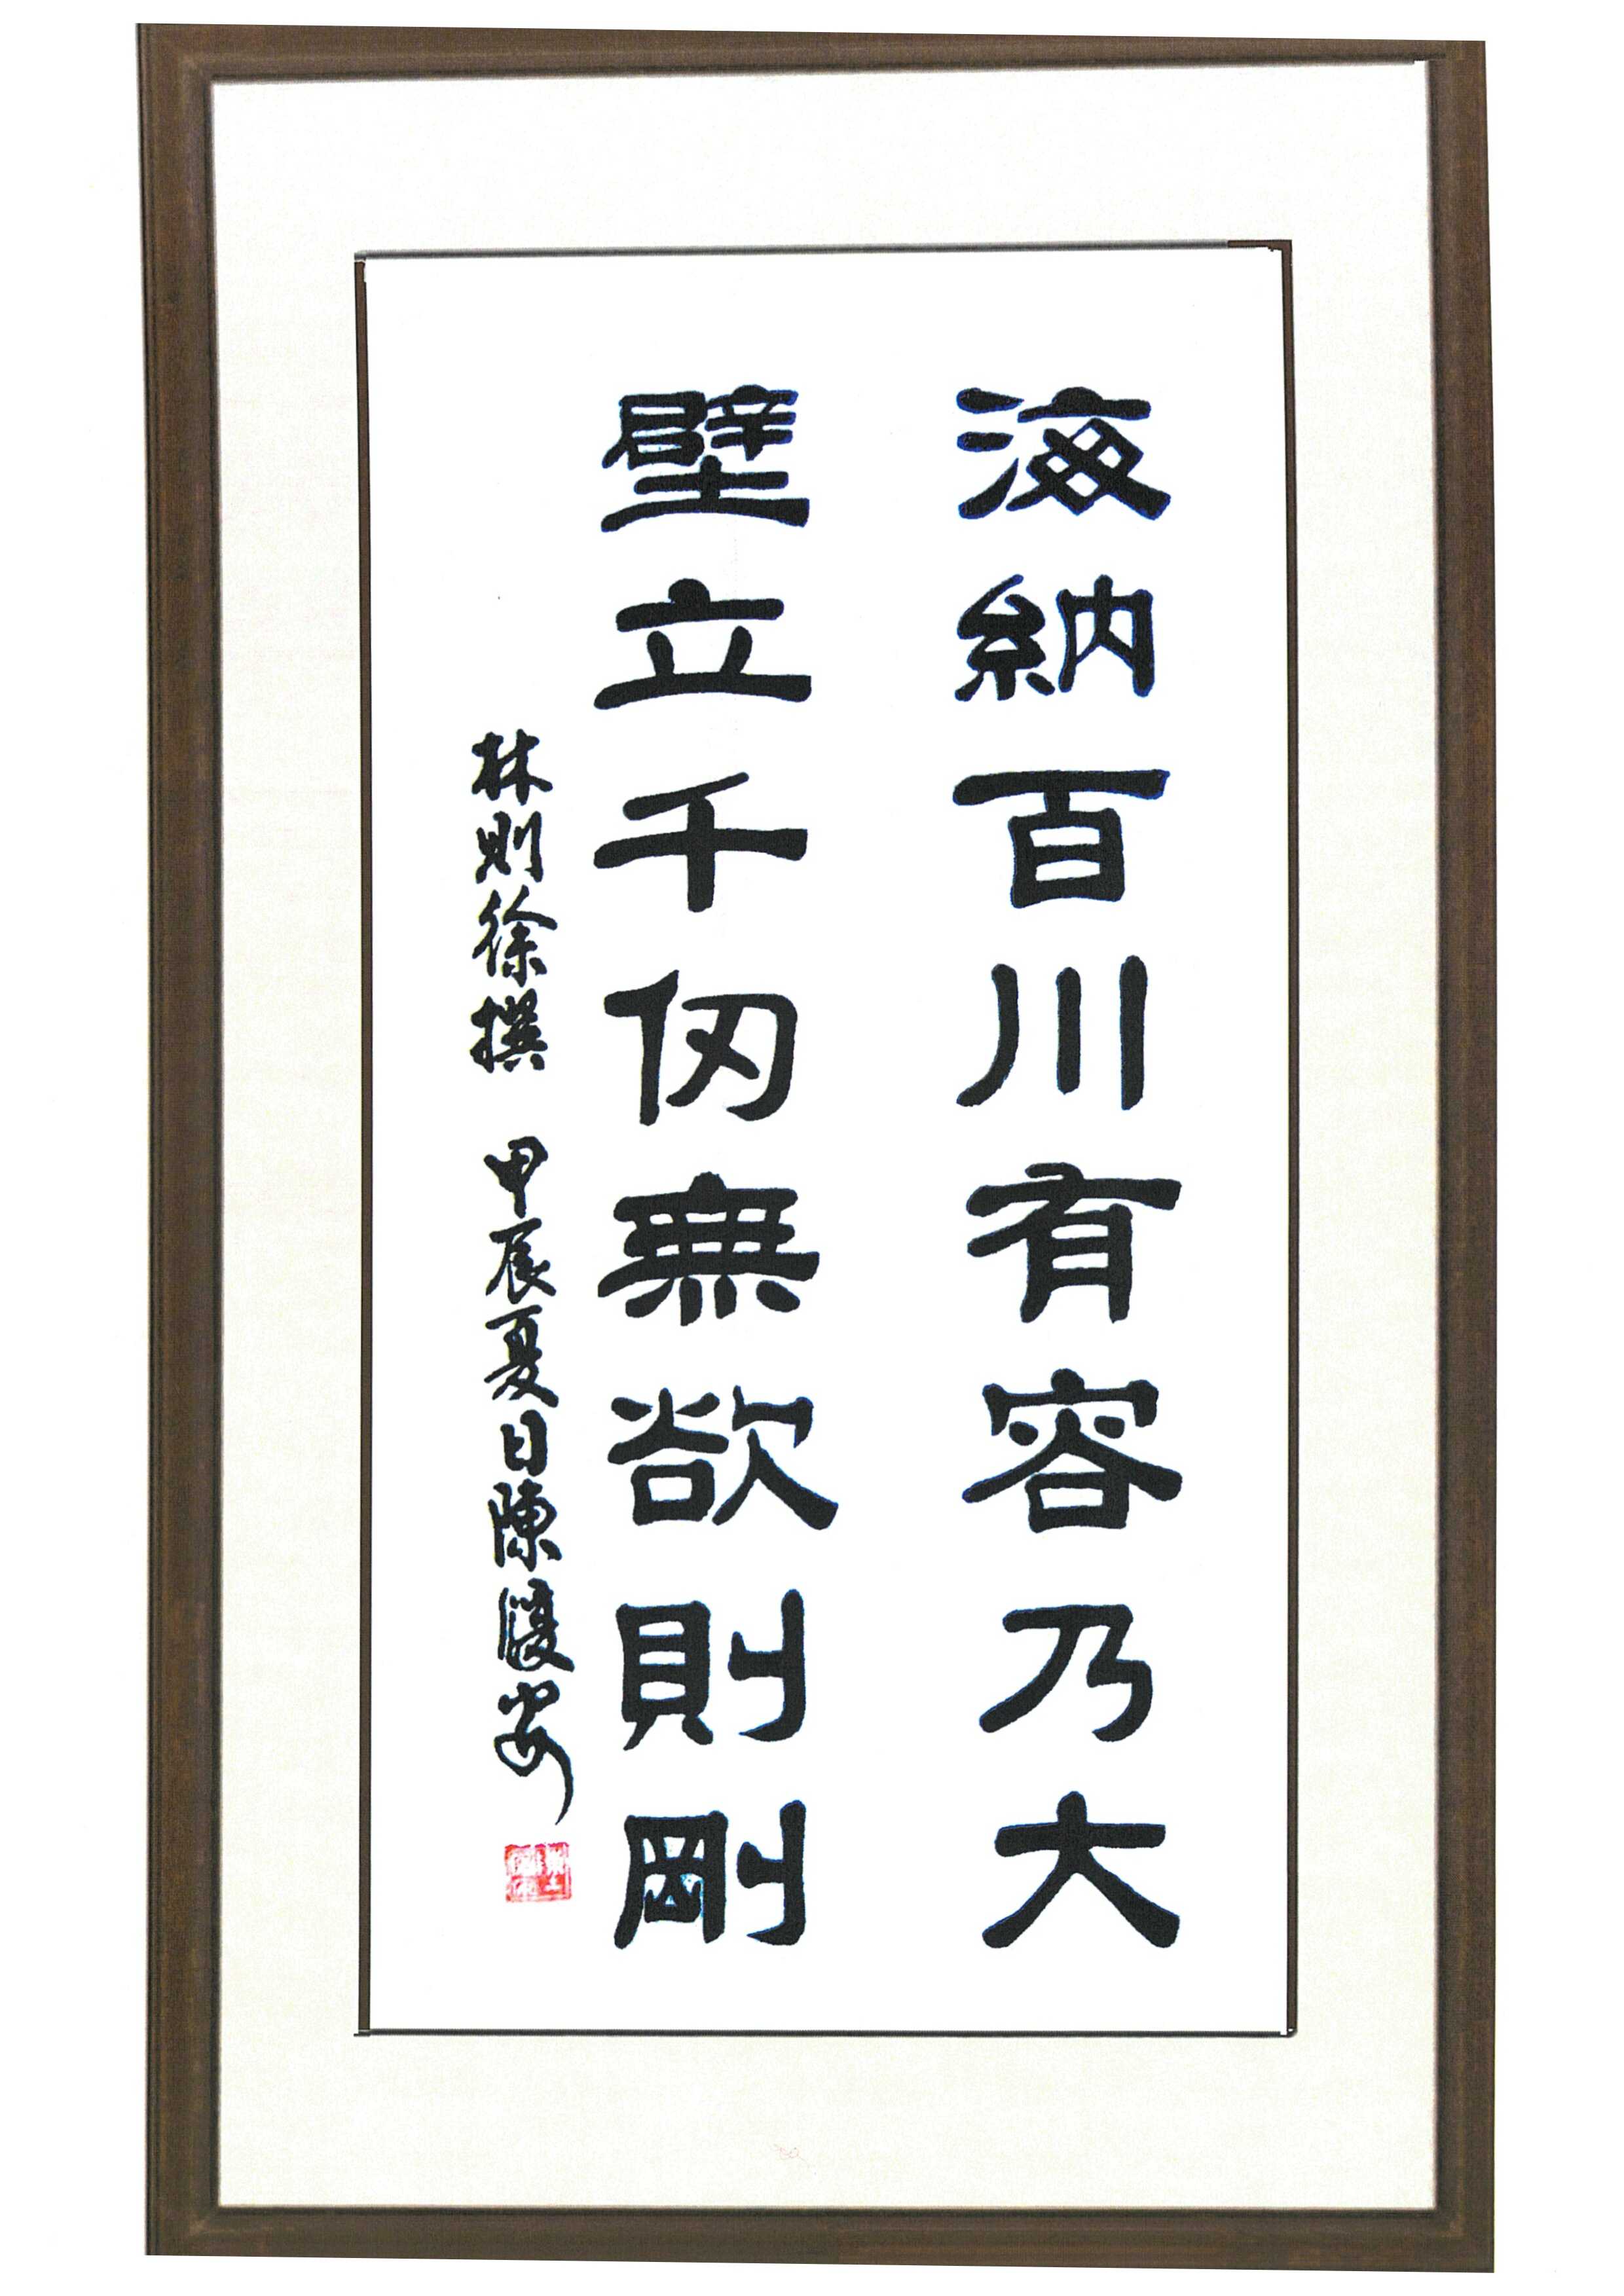 海納百川有容乃大
壁立千仞無欲則剛
林則徐撰 甲辰夏日陳